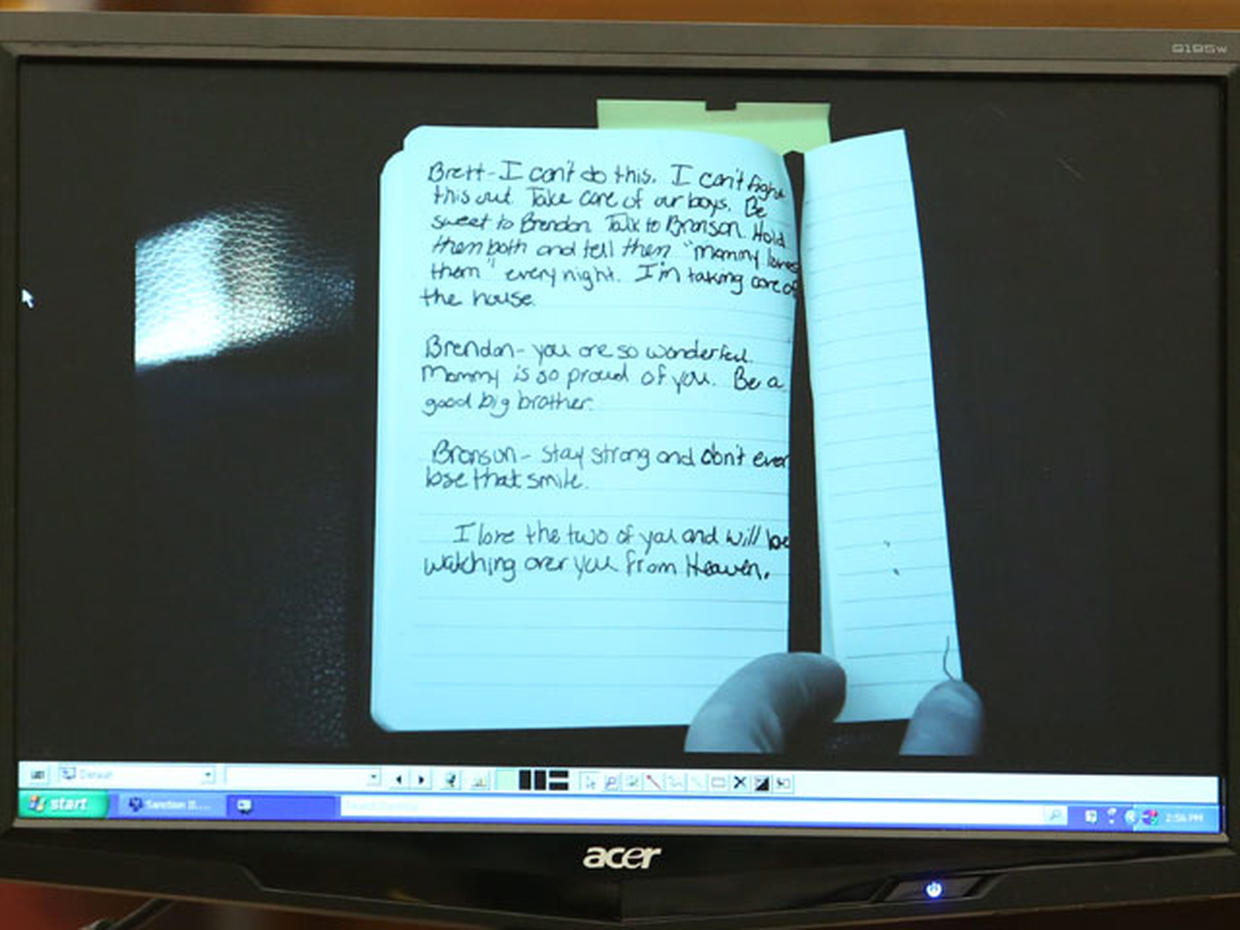 G195w
Brett - I can't do this. I can't fight
this out. Take care of our boys. Be
sweet to Brendon. Talk to Bronson. Hold
them both and tell them "mommy loves
them" every night. I'm taking care of
the house.
Brendon - you are so wonderful.
Mommy is so proud of you. Be a
good big brother.
Bronson - stay strong and don't ever
lose that smile.
I love the two of you and will be
watching over you from Heaven.
Default
start
Sanction II....
2:56 PM
acer